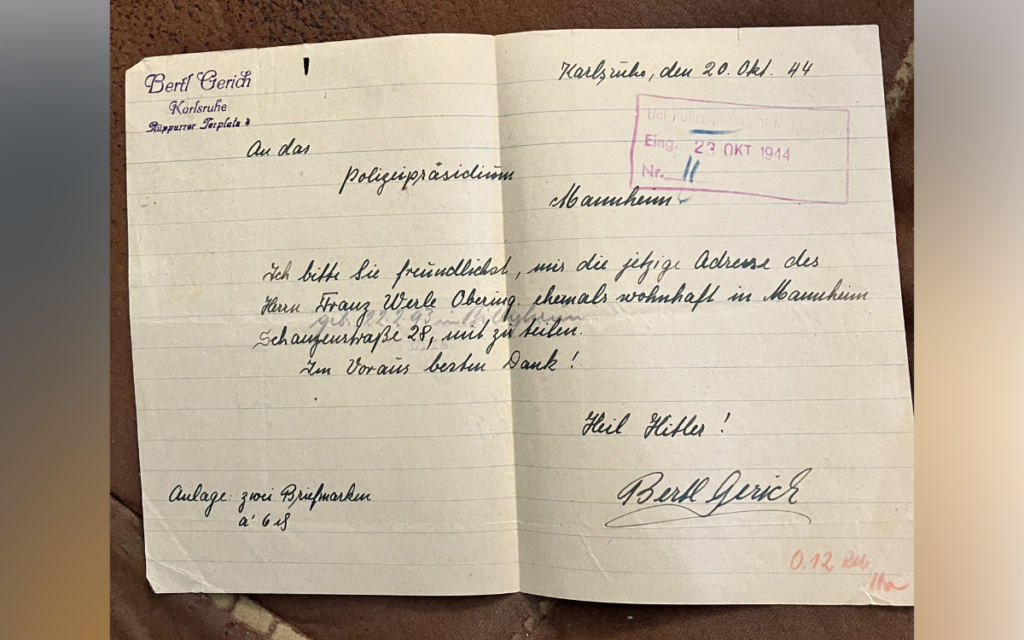 Bertl Gerich
Karlsruhe
Rüppurrer Torplatz
Karlsruhe, den 20. Okt. 44
Der Polizeipräsident
Eing. 23 OKT 1944
Nr. 11
An das
Polizeipräsidium
Mannheim
Ich bitte Sie freundlichst, mir die jetzige Adresse des
Herrn Franz Werle Obering. ehemals wohnhaft in Mannheim
geb. in
Schanzenstraße 28, mit zu teilen.
Im Voraus besten Dank!
Heil Hitler!
Bertl Gerich
Anlage: zwei Briefmarken
a' 6
0.12